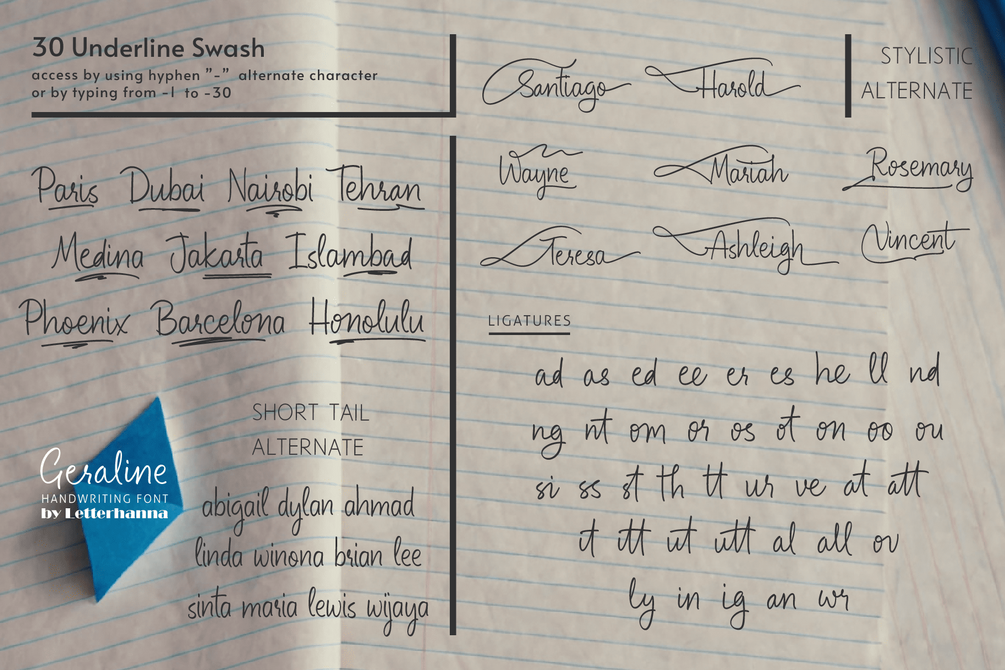 30 Underline Swash
access by using hyphen "-" alternate character
or by typing from -1 to -30
Paris Dubai Nairobi Tehran
Medina Jakarta Islambad
Phoenix Barcelona Honolulu
SHORT TAIL
ALTERNATE
abigail dylan ahmad
linda winona brian lee
sinta maria lewis wijaya
Geraline
HANDWRITING FONT
by Letterhanna
STYLISTIC
ALTERNATE
Santiago Harold
Wayne Mariah Rosemary
Teresa Ashleigh Vincent
LIGATURES
ad as ed ee er es he ll nd
ng nt om or os ot on oo ou
si ss st th tt ur ve at att
it itt ut utt al all ov
ly in ig an wr